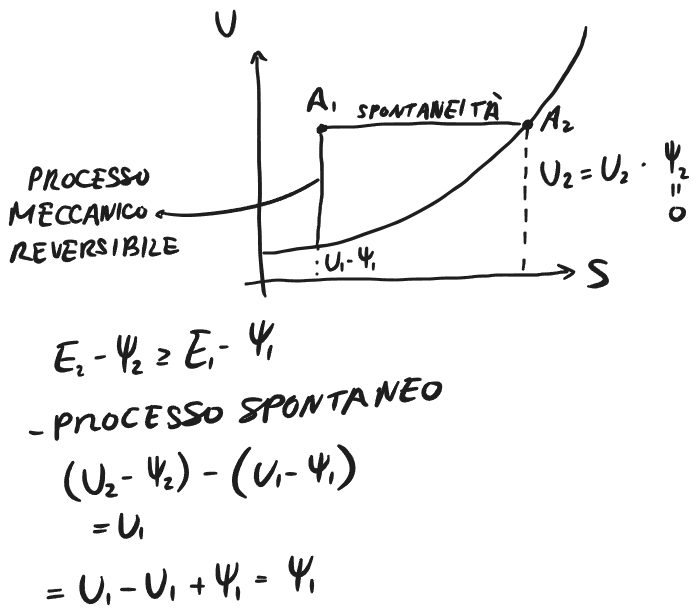 U
A₁ SPONTANEITÀ A₂
PROCESSO
MECCANICO
REVERSIBILE
U₂ = U₂ · Ψ₂
=
0
U₁ - Ψ₁
S
E₂ - Ψ₂ ≥ E₁ - Ψ₁
- PROCESSO SPONTANEO
(U₂ - Ψ₂) - (U₁ - Ψ₁)
= U₁
= U₁ - U₁ + Ψ₁ = Ψ₁